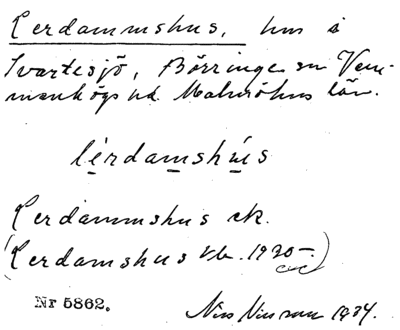 Lerdammshus, hus å
Svartesjö, Börringe sn Vem-
menhögs hd. Malmöhus län.
lérdamshús
Lerdammshus ek.
(Lerdamshus Vb. 1920–)
Nr 5862.
1934.